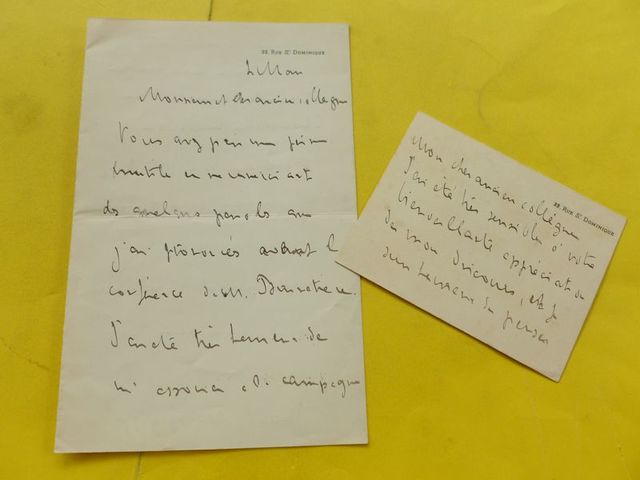 22 RUE ST DOMINIQUE
Monsieur et cher ancien collègue
Vous avez pris une peine
inutile en me remerciant
des quelques paroles que
j'ai prononcées avant la
conférence de M.
J'ai été très heureux de
m'associer à la campagne
22 RUE ST DOMINIQUE
Mon cher ancien collègue
J'ai été très sensible à votre
bienveillante appréciation
de mon discours, et je
suis heureux de penser